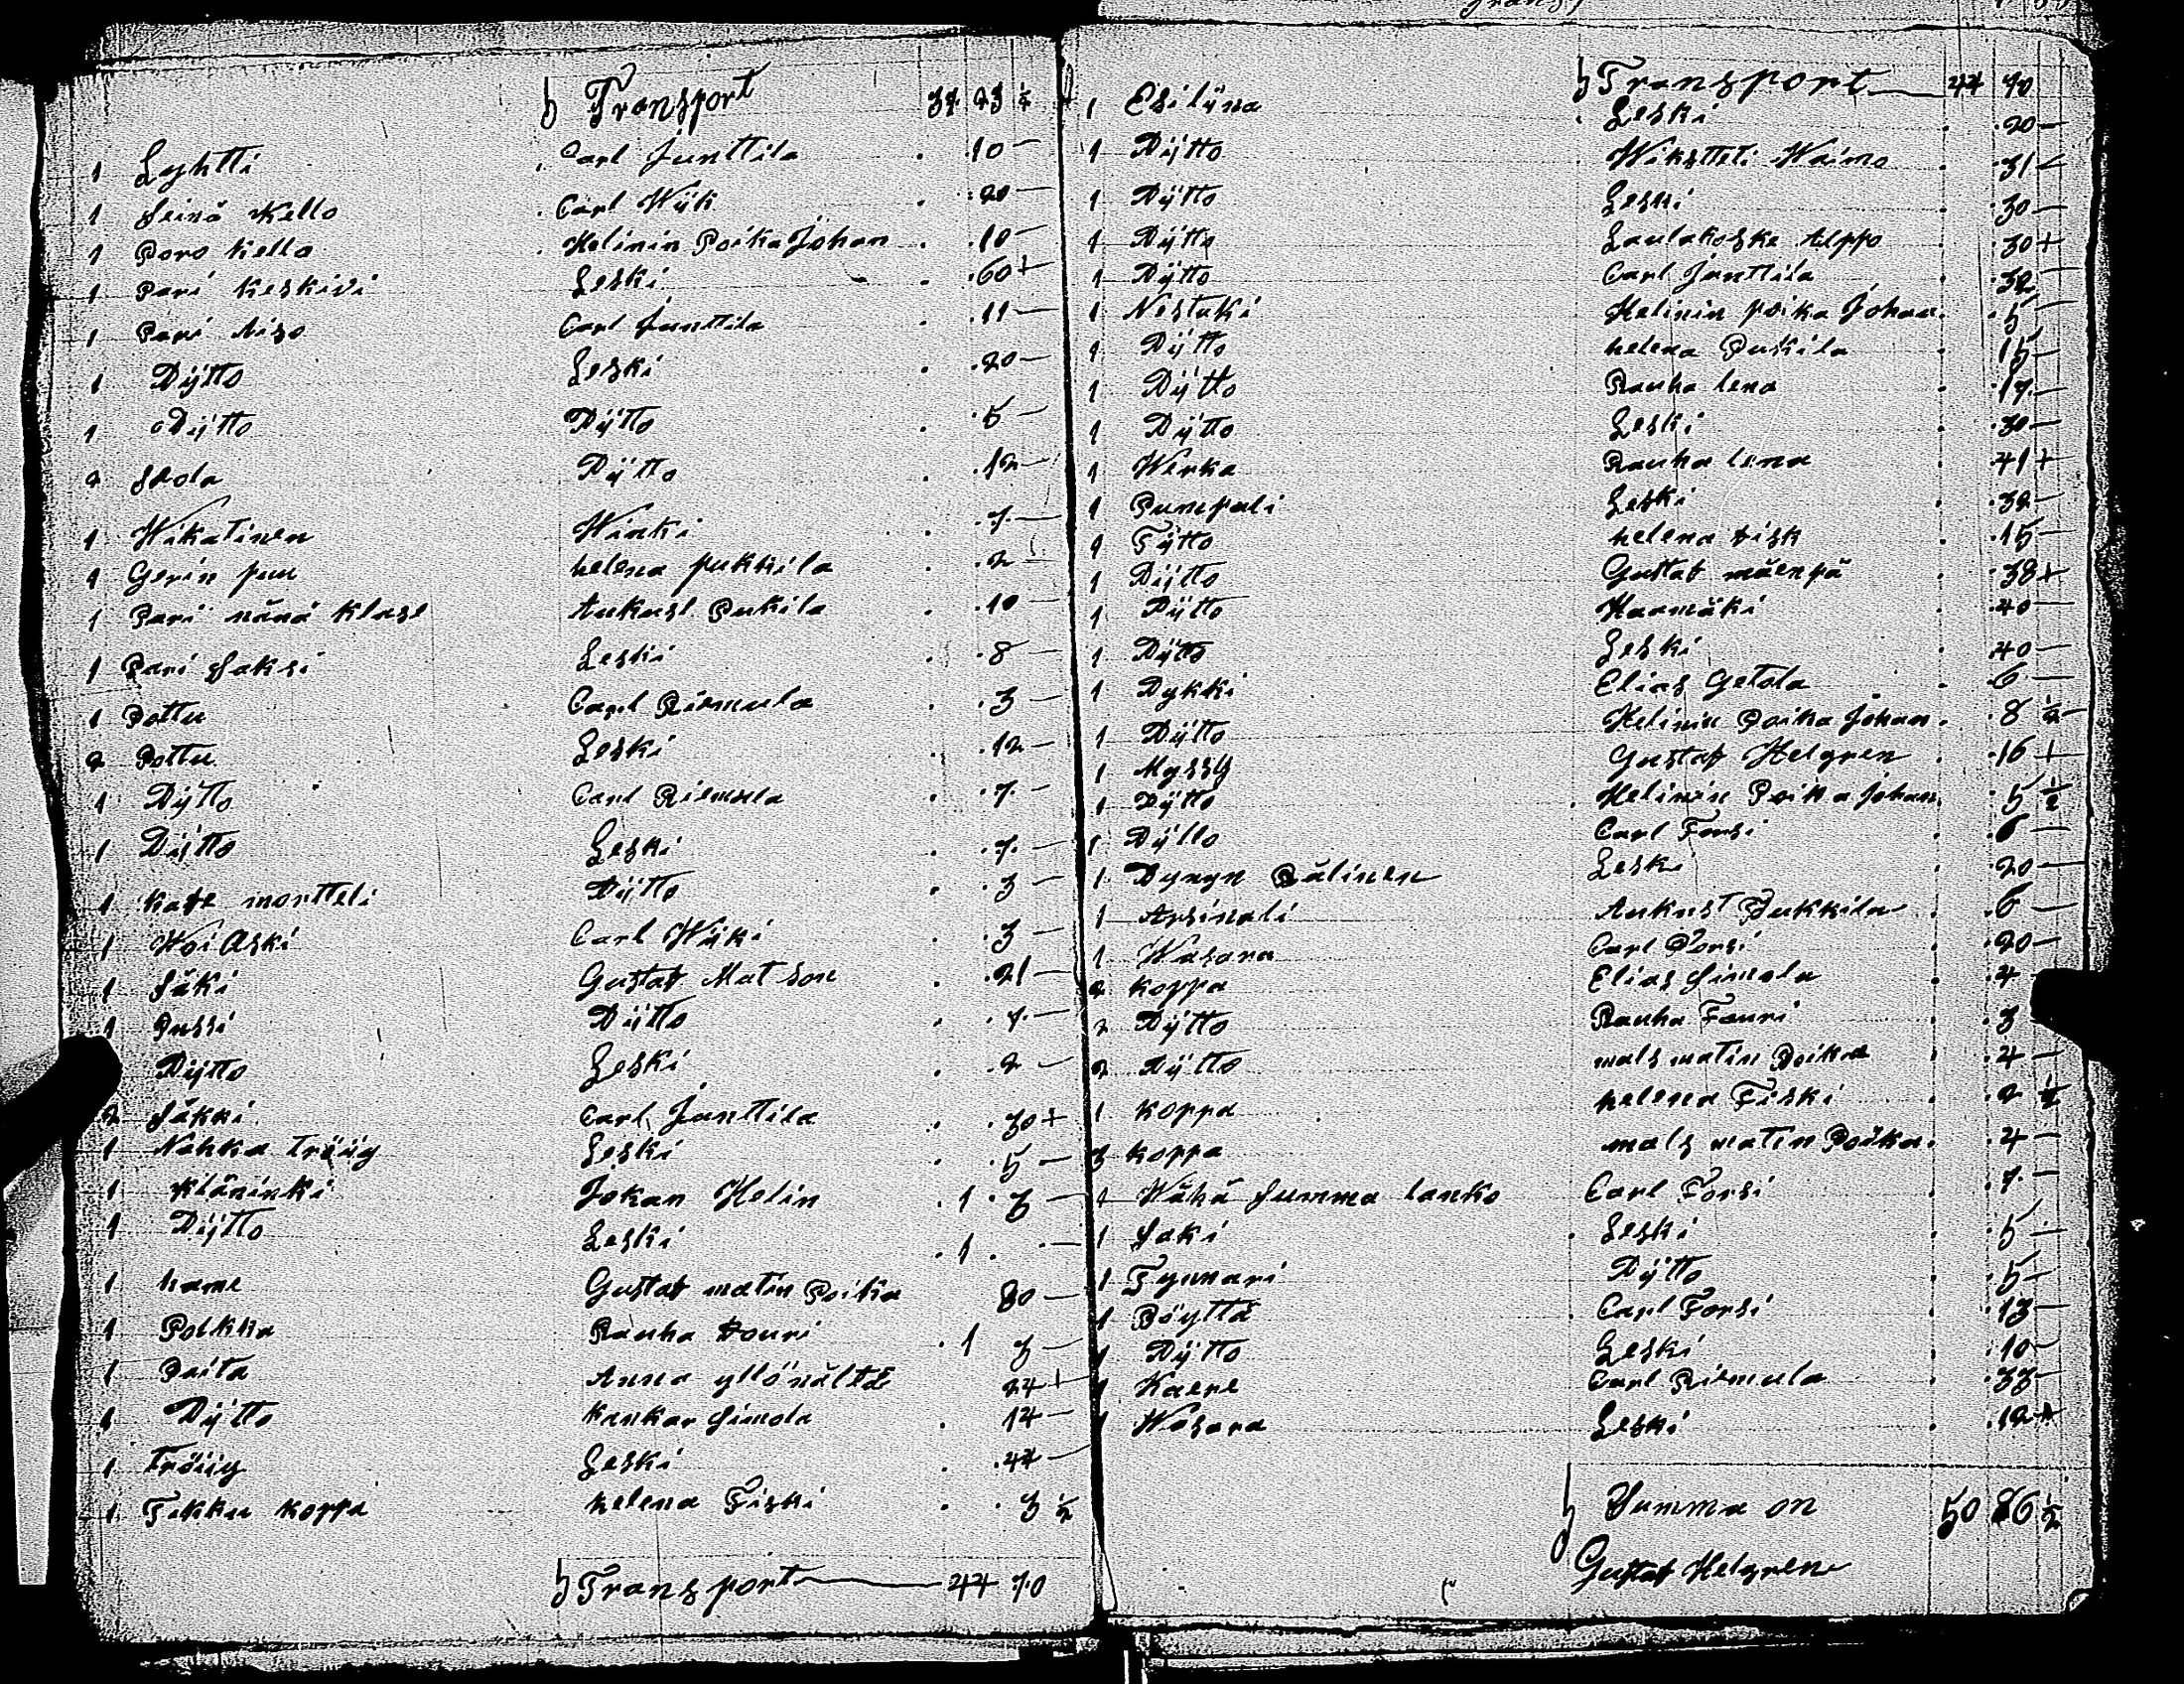 Transport 37 23 ½
1 Lyhtti Carl Junttila 10 —
1 Seinä Kello Carl Wÿk 20 —
1 Poro kello Helinin Poika Johan 10 —
1 Pari keskivi Leski 60 +
1 Pari Carl Junttila 11 —
1 Dÿtto Leski 20 —
1 Dÿtto Dÿtto 5 —
2 Skola Dÿtto 12 —
1 Wikatinen Winki 7 —
1 Gerin puu helena pukkila 2 —
1 Pari nänä klasl Aukusl Pukila 10 —
1 Pari Saksi Leski 8 —
1 Pottu Carl Riemula 3 —
2 Pottu Leski 12 —
1 Dÿtto Carl Riemula 7 —
1 Dÿtto Leski 7 —
1 kafe mortteli Dÿtto 3 —
1 Woi Aski Carl Wÿki 3 —
1 Säki Gustaf Matson 21 —
1 Pussi Dÿtto 7 —
Dÿtto Leski 2 —
2 Säkki Carl Junttila 30 +
1 Nahka tröijy Leski 5 —
1 kläninki Johan Helin 1 3 —
1 Dÿtto Leski 1 . —
1 hame Gustaf matin Poika 80 —
1 Polkka Rauha Fouri 1 3 —
1 Paita Anna yllönältä 24 +
1 Dÿtto kankar Simola 14 —
1 Tröijy Leski 44 —
1 koppa helena Fiski 3 ½
Transport 44 70
Transport 44 70
1 Esilÿna Leski 20 —
1 Dÿtto Wäkstteli Waimo 31 —
1 Dÿtto Leski 30 —
1 Dÿtto Laulakoske Alppo 30 +
1 Dÿtto Carl Junttila 32 —
1 Nestuki Helinin poika Johan 5 —
1 Dÿtto helena Pukila 15 —
1 Dÿtto Rauha lena 17 —
1 Dÿtto Leski 30 —
1 Werka Rauha lena 41 +
1 Leski 32 —
1 Tÿtto helena Fisk 15 —
1 Dÿtto Gustaf mäenpä 38 +
1 Dÿtto Haamäki 40 —
1 Dÿtto Leski 40 —
1 Dykki Elias Getola 6 —
1 Dÿtto Helinin Poika Johan 8 ½ —
1 Myssy Gustaf Helgren 16 +
1 Dÿtto Helinin Poika Johan 5 ½
1 Dÿtto Carl Forsi 6 —
1 Dynyn Pälinen Leski 20 —
1 Arsinali Aukust Pukkila 6 —
1 Wasara Carl Forsi 20 —
2 koppa Elias Simola 4
2 Dÿtto Rauha Fouri 3
2 Dÿtto mals matin Poika 4 —
1 koppa helena Fiski 2 ½
3 koppa mals matin Poika 4 —
1 Wähä Summa lanko Carl Forsi 7 —
1 Saki Leski 5 —
1 Tynnari Dÿtto 5 —
1 Pöyttä Carl Forsi 13 —
1 Dÿtto Leski 10 —
1 Kaere Carl Riemula 33 —
1 Wasara Leski 12
Summa on 50 86 ½
Gustaf Helgren